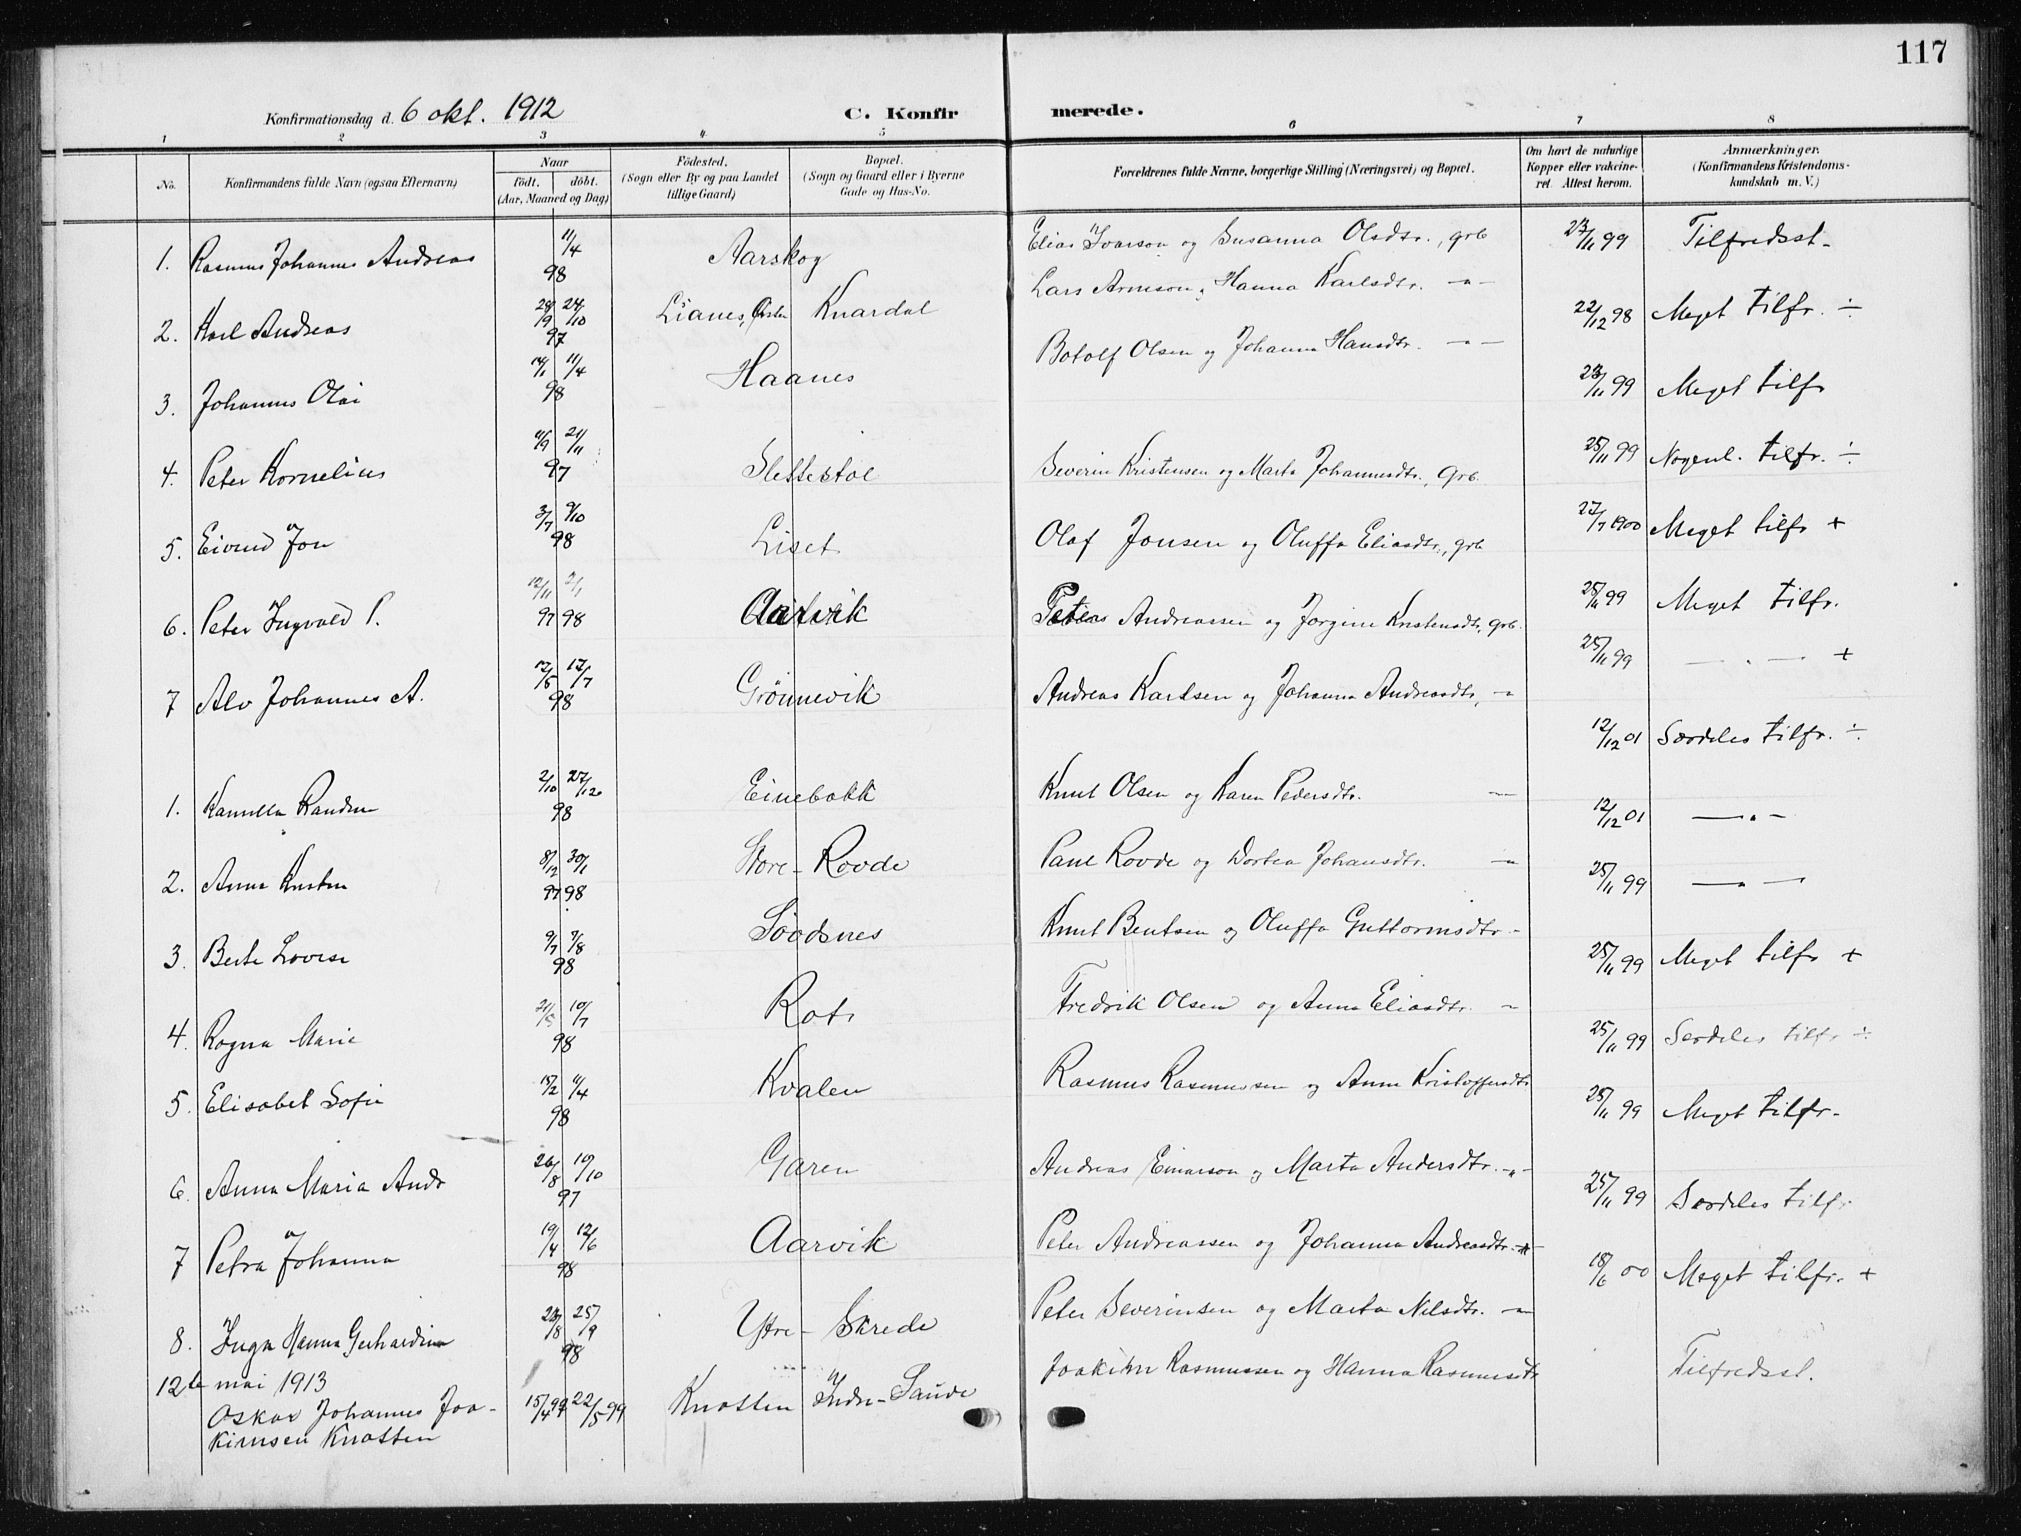 117
Konfirmationsdag d. 6 okt. 1912 C. Konfirmerede.
1 2 3 4 5 6 7 8
No. Konfirmandens fulde Navn (ogsaa Efternavn) Naar födt. döbt. (Aar, Maaned og Dag) Födested. (Sogn eller By og paa Landet tillige Gaard) Bopæl. (Sogn og Gaard eller i Byerne Gade og Hus-No. Forældrenes fulde Navne, borgerlige Stilling (Næringsvei) og Bopæl. Om havt de naturlige Kopper eller vakcineret. Attest herom. Anmærkninger. (Konfirmandens Kristendomskundskab m. V.)
1. Rasmus Johannes Andreas 11/4 98 Aarskog Elias Ivarson og Susanna Olsdtr., grb 23/11 99 Tilfredsst.
2. Karl Andreas 28/9 24/10 97 Lianes, Knardal Lars Arneson, Hanna Karlsdtr. -"- 22/12 98 Meget tilfr. ÷
3. Johannes Olai 11/4 98 Haanes Botolf Olsen og Johanna Hansdtr. -"- 23/11 99 Meget tilfr
4. Peter Kornelius 11/9 21/11 97 Slettestøl Severin Kristensen og Marta Johannesdtr., Grb. 25/11 99 Nogenl. tilfr. ÷
5. Eivind Jon 3/7 9/10 98 Liset Olaf Jonsen og Oluffa Eliasdtr., grb 27/7 1900 Meget tilfr +
6. Peter Ingvald P. 12/11 2/1 97 98 Aarvik Andreassen og Jorgine Kristensdtr, grb. 25/11 99 Meget tilfr.
7 Alv Johannes A. 12/5 17/7 98 Grönnevik Andreas Karlsen og Johanna Andreasdtr, -" 25/11 99 — " — +
1. Kamilla Randine 2/10 27/12 98 Einebakk Knut Olsen og Karen Pedersdtr. — 12/12 01 Særdeles tilfr. ÷
2. Anna Kristine 8/12 30/1 97 98 Store-Rovde Paul Rovde og Dortea Johansdtr. -" 12/12 01 — " -
3. Berte Lovise 9/7 7/8 98 Söodsnes Knut Bentsen og Oluffa Guttormsdtr - 25/11 99 — " —
4. Ragna Marie 21/5 10/7 98 Rots Fredrik Olsen og Anna Eliasdtr. -" 25/11 99 Meget tilfr +
5. Elisabet Sofie 15/2 11/4 98 Kvalen Rasmus Rasmussen og Anne Kristoffersdtr 25/11 99 Særdeles tilfr ÷
6. Anna Maria Andr 26/8 10/10 97 Garen Andreas Einarson og Marta Andersdtr. -"- 25/11 99 Meget tilfr.
7 Petra Johanna 19/4 12/6 98 Aarvik Peter Andreassen og Johanna Andreasdtr. -"- 25/11 99 Særdeles tilfr
8. Inga Hanna Gerhardine 23/8 25/9 98 Ytre-Skrede Peter Severinsen og Marta Nilsdtr. -" 18/6 00 Meget tilfr. +
12te mai 1913
Oskar Johannes Joa- 15/4 99 22/5 99 Knotten Indre-Saude Joakim Rasmussen og Hanna Rasmusdtr Tilfredsst.
kimsen Knotten